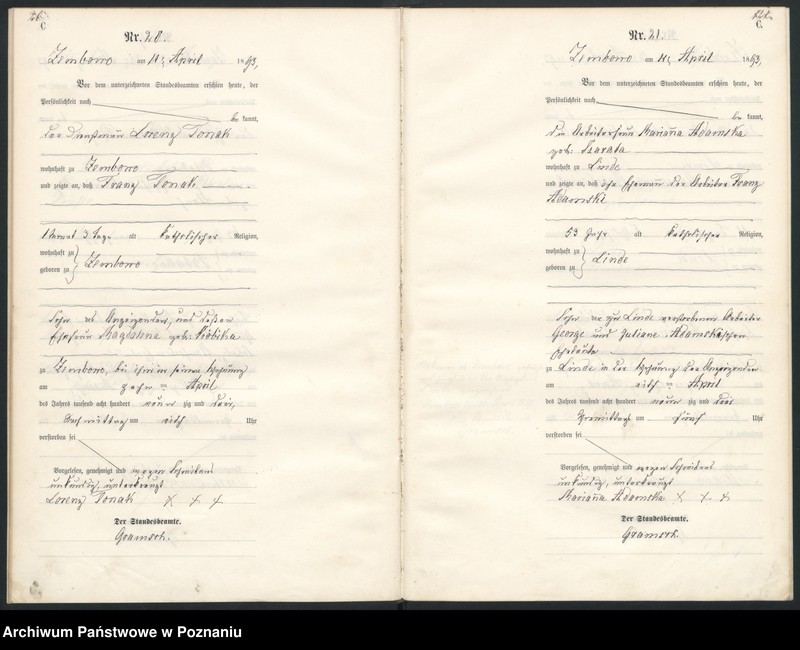 C.
Nr. 20.
Zembowo am 11. April 1893,
Vor dem unterzeichneten Standesbeamten erschien heute, der
Persönlichkeit nach
be kannt,
der Dienstmann Lorenz Ponak
wohnhaft zu Zembowo
und zeigte an, daß Franz Ponak
1 Monat 3 Tage alt katholischer Religion,
wohnhaft zu
geboren zu Zembowo
Sohn des Anzeigenden, und dessen
Ehefrau Magdalena geb.
zu Zembowo, bei ihm in seiner Wohnung
am zehn ten April
des Jahres tausend acht hundert neun zig und drei,
Nachmittag um acht Uhr
verstorben sei
Vorgelesen, genehmigt und wegen Schreibens
unkundig, unterkreuzt
Lorenz Ponak X X X
Der Standesbeamte.
Gramsch.
C.
Nr. 21.
Zembowo am 11. April 1893,
Vor dem unterzeichneten Standesbeamten erschien heute, der
Persönlichkeit nach
be kannt,
die Arbeiterfrau Marianna Adamska
geb.
wohnhaft zu Linde
und zeigte an, daß ihr Ehemann der Arbeiter Franz
Adamski
53 Jahr alt katholischer Religion,
wohnhaft zu
geboren zu Linde
Sohn der zu Linde verstorbenen Arbeiter
George und Juliane Adamskischen
Eheleute
zu Linde in der Wohnung der Anzeigenden
am acht ten April
des Jahres tausend acht hundert neun zig und drei
Vormittags um fünf Uhr
verstorben sei
Vorgelesen, genehmigt und wegen Schreibens
unkundig, unterkreuzt
Marianna Adamska X X X
Der Standesbeamte.
Gramsch.
Archiwum Państwowe w Poznaniu